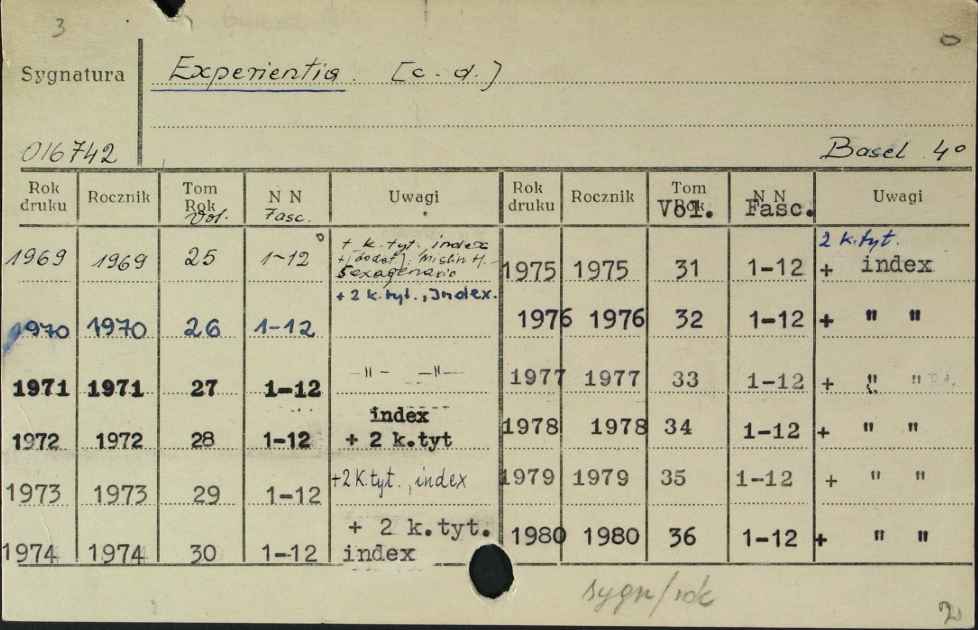 3
0
Sygnatura Experientia. [c. d.]
016742 Basel 4°
Rok druku Rocznik Tom Rok Vol. N N Fasc. Uwagi Rok druku Rocznik Tom Rok Vol. N N Fasc. Uwagi
1969 1969 25 1-12 + k. tyt. index
+ [dodat]: Mislin H. -
Sexagenario
1970 1970 26 1-12 + 2 k. tyt., Index.
1971 1971 27 1-12 -"- -"-
1972 1972 28 1-12 index
+ 2 k.tyt
1973 1973 29 1-12 +2 k. tyt., index
1974 1974 30 1-12 + 2 k.tyt.
index
1975 1975 31 1-12 2 k.tyt.
+ index
1976 1976 32 1-12 + " "
1977 1977 33 1-12 + " "
1978 1978 34 1-12 + " "
1979 1979 35 1-12 + " "
1980 1980 36 1-12 + " "
sygn/rok